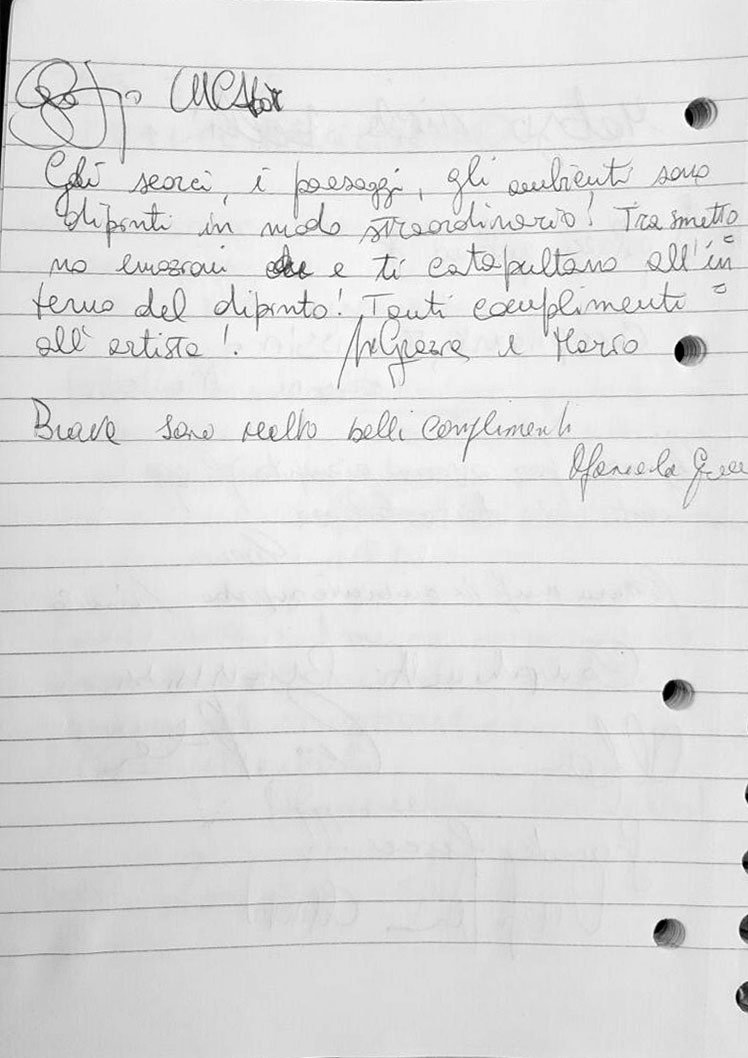 Gli scorci, i paesaggi, gli ambienti sono
dipinti in modo straordinario! Trasmetto=
no emozioni e ti catapultano all'in=
terno del dipinto! Tanti complimenti
all'artista! e Mario
Brava sono molto belli complimenti